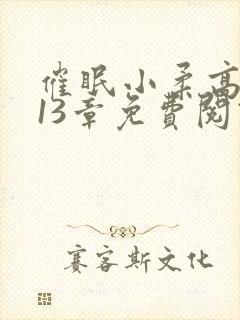 催眠小柔高
13章免費閱
赛客斯文化